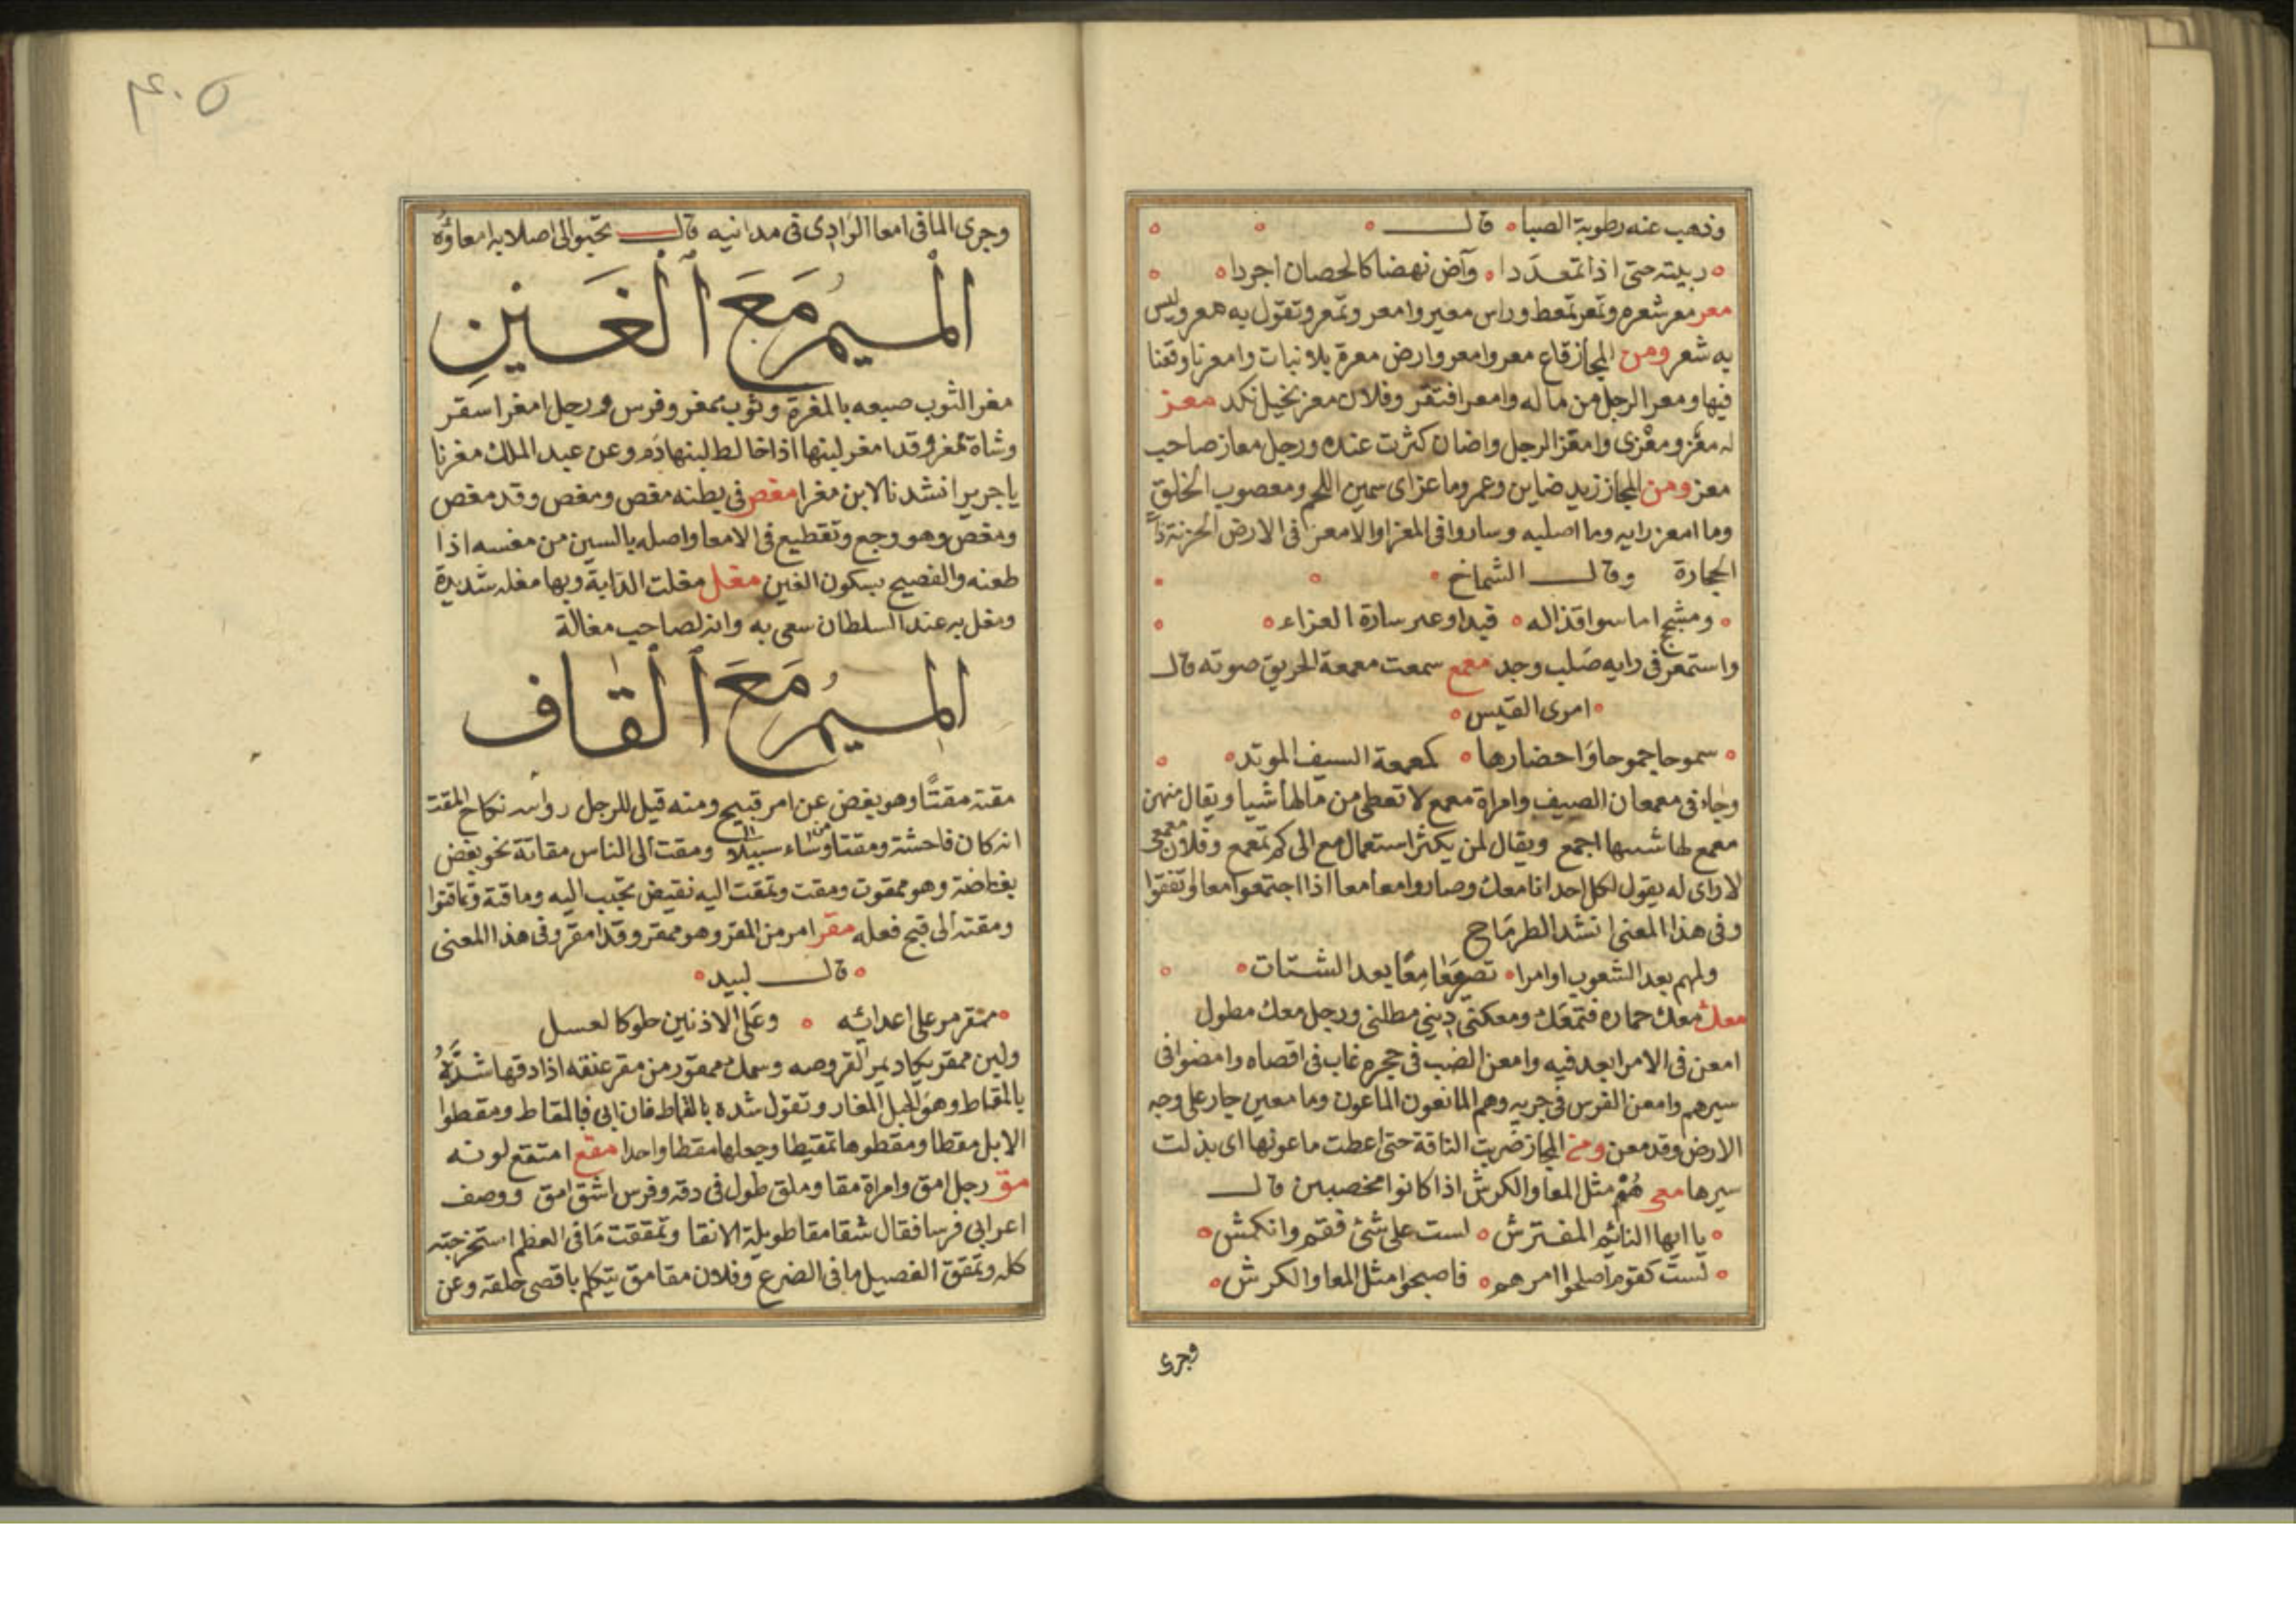 وذهب عنه رطوبة الصبا قال
ربيته حتى اذا تمعددا وآض نهضا كالحصان اجردا
معر معر شعره وتمعر تمعط وراس معير وامعر وتمعر وتقول به معر وليس
به شعر ومن المجاز قاع معر وامعر وارض معرة بلا نبات وامعرنا وقعنا
فيها ومعر الرجل من ماله وامعر افتقر وفلان معز بخيل نكد معز
له معز ومعزى وامعز الرجل واضان كثرت عنده ورجل معاز صاحب
معز ومن المجاز زيد ضاين وعمرو ماعز اى سمين اللحم ومعصوب الخلق
وما امعز رايه وما اصلبه وساروا فى المعزا والامعز فى الارض الحزنة ذات
الحجارة وقال الشماخ
ومشجج اما سواقذاله فبدا وعىر سارة المعزاء
واستمعز فى رايه صلب وجد معمع سمعت معمعة الحريق صوته قال
امرى القيس
سموحا جموحا واحضارها كمعمعة السيف الموتد
وجاء فى معمعان الصيف وامراة معمع لا تعطى من مالها شيا ويقال منهن
معمع لها شيبها اجمع ويقال لمن يكثر استعمال مع الى كم تمعمع وفلان معمعى
لا راى له يقول لكل احد انا معك وصاروا معا معا اذا اجتمعوا معا واتفقوا
وفى هذا المعنى انشد الطرماح
ولهم بعد الشعوب اوامرا معا معا بعد الشتات
معك معك حماره فتمعك ومعكنى دينى مطلنى ورجل معك مطول
امعن فى الامر ابعد فيه وامعن الضب فى جحره غاب فى اقصاه وامضوا فى
سيرهم وامعن الفرس فى جريه وهم المانعون الماعون وما معين جار على وجه
الارض وقد معن ومن المجاز ضربت الناقة حتى اعطت ماعونها اى بذلت
سيرها معى هم مثل المعا والكرش اذا كانوا مخصبين قال
يا ايها النائم المفترش لست على شئ فقم وانكمش
لست كقوم اصلحوا امرهم فاصبحوا مثل المعا والكرش
وجرى
٤٠٥
وجرى الما فى امعا الوادى فى مدانيه قال تحبو الى اصلابه امعاؤه
الميم مع الغين
مغر الثوب صبغه بالمغرة وثوب ممغر وفرس ورجل امغر اسقر
وشاة ممغر وقد امغر لبنها اذا خالط لبنها دم وعن عبد الملك مغرنا
يا جرير انشدنا لابن مغرا مغص فى بطنه مغص ومغص وقد مغص
ومغص وهو وجع وتقطيع فى الامعا واصله بالسين من مغسه اذا
طعنه والفصيح بسكون الغين مغل مغلت الدابة وبها مغله شديدة
ومغل به عند السلطان سعى به وانه لصاحب مغالة
الميم مع القاف
مقته مقتا وهو بغض عن امر قبيح ومنه قيل للرجل روابه نكاح المقت
انه كان فاحشة ومقتا وساء سبيلا ومقت الى الناس مقاتة نحو بغض
بغاضة وهو ممقوت ومقت وتمقت اليه نقيض تحبب اليه وماقته وتماقتوا
ومقته الى قبح فعله مقر امر من المقر وهو ممقر وقد امقر وفى هذا المعنى
قال لبيد
ممقر مر على اعدائه وعلى الاذنين حلو كالعسل
ولبن ممقر يكاد يمر القروصه وسمك ممقور من مقر عنقه اذا دقها شده
بالمقاط وهو الحبل المغار وتقول شده بالقماط فان ابى فبالمقاط ومقطوا
الابل مقطا ومقطوها تمقيطا وجعلها مقطا واحدا مقع امتقع لونه
مق رجل امق وامراة مقا وملق طول فى دقه وفرس اشق امق ووصف
اعرابى فرسا فقال شقا مقا طويلة الانقا وتمققت ما فى العظم استخرجته
كله وتمقق الفصيل ما فى الضرع وفلان مقامق يتكلم باقصى حلقه وعن